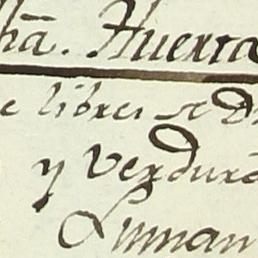 hã. Huerta
e libres
y Verdura
Luman